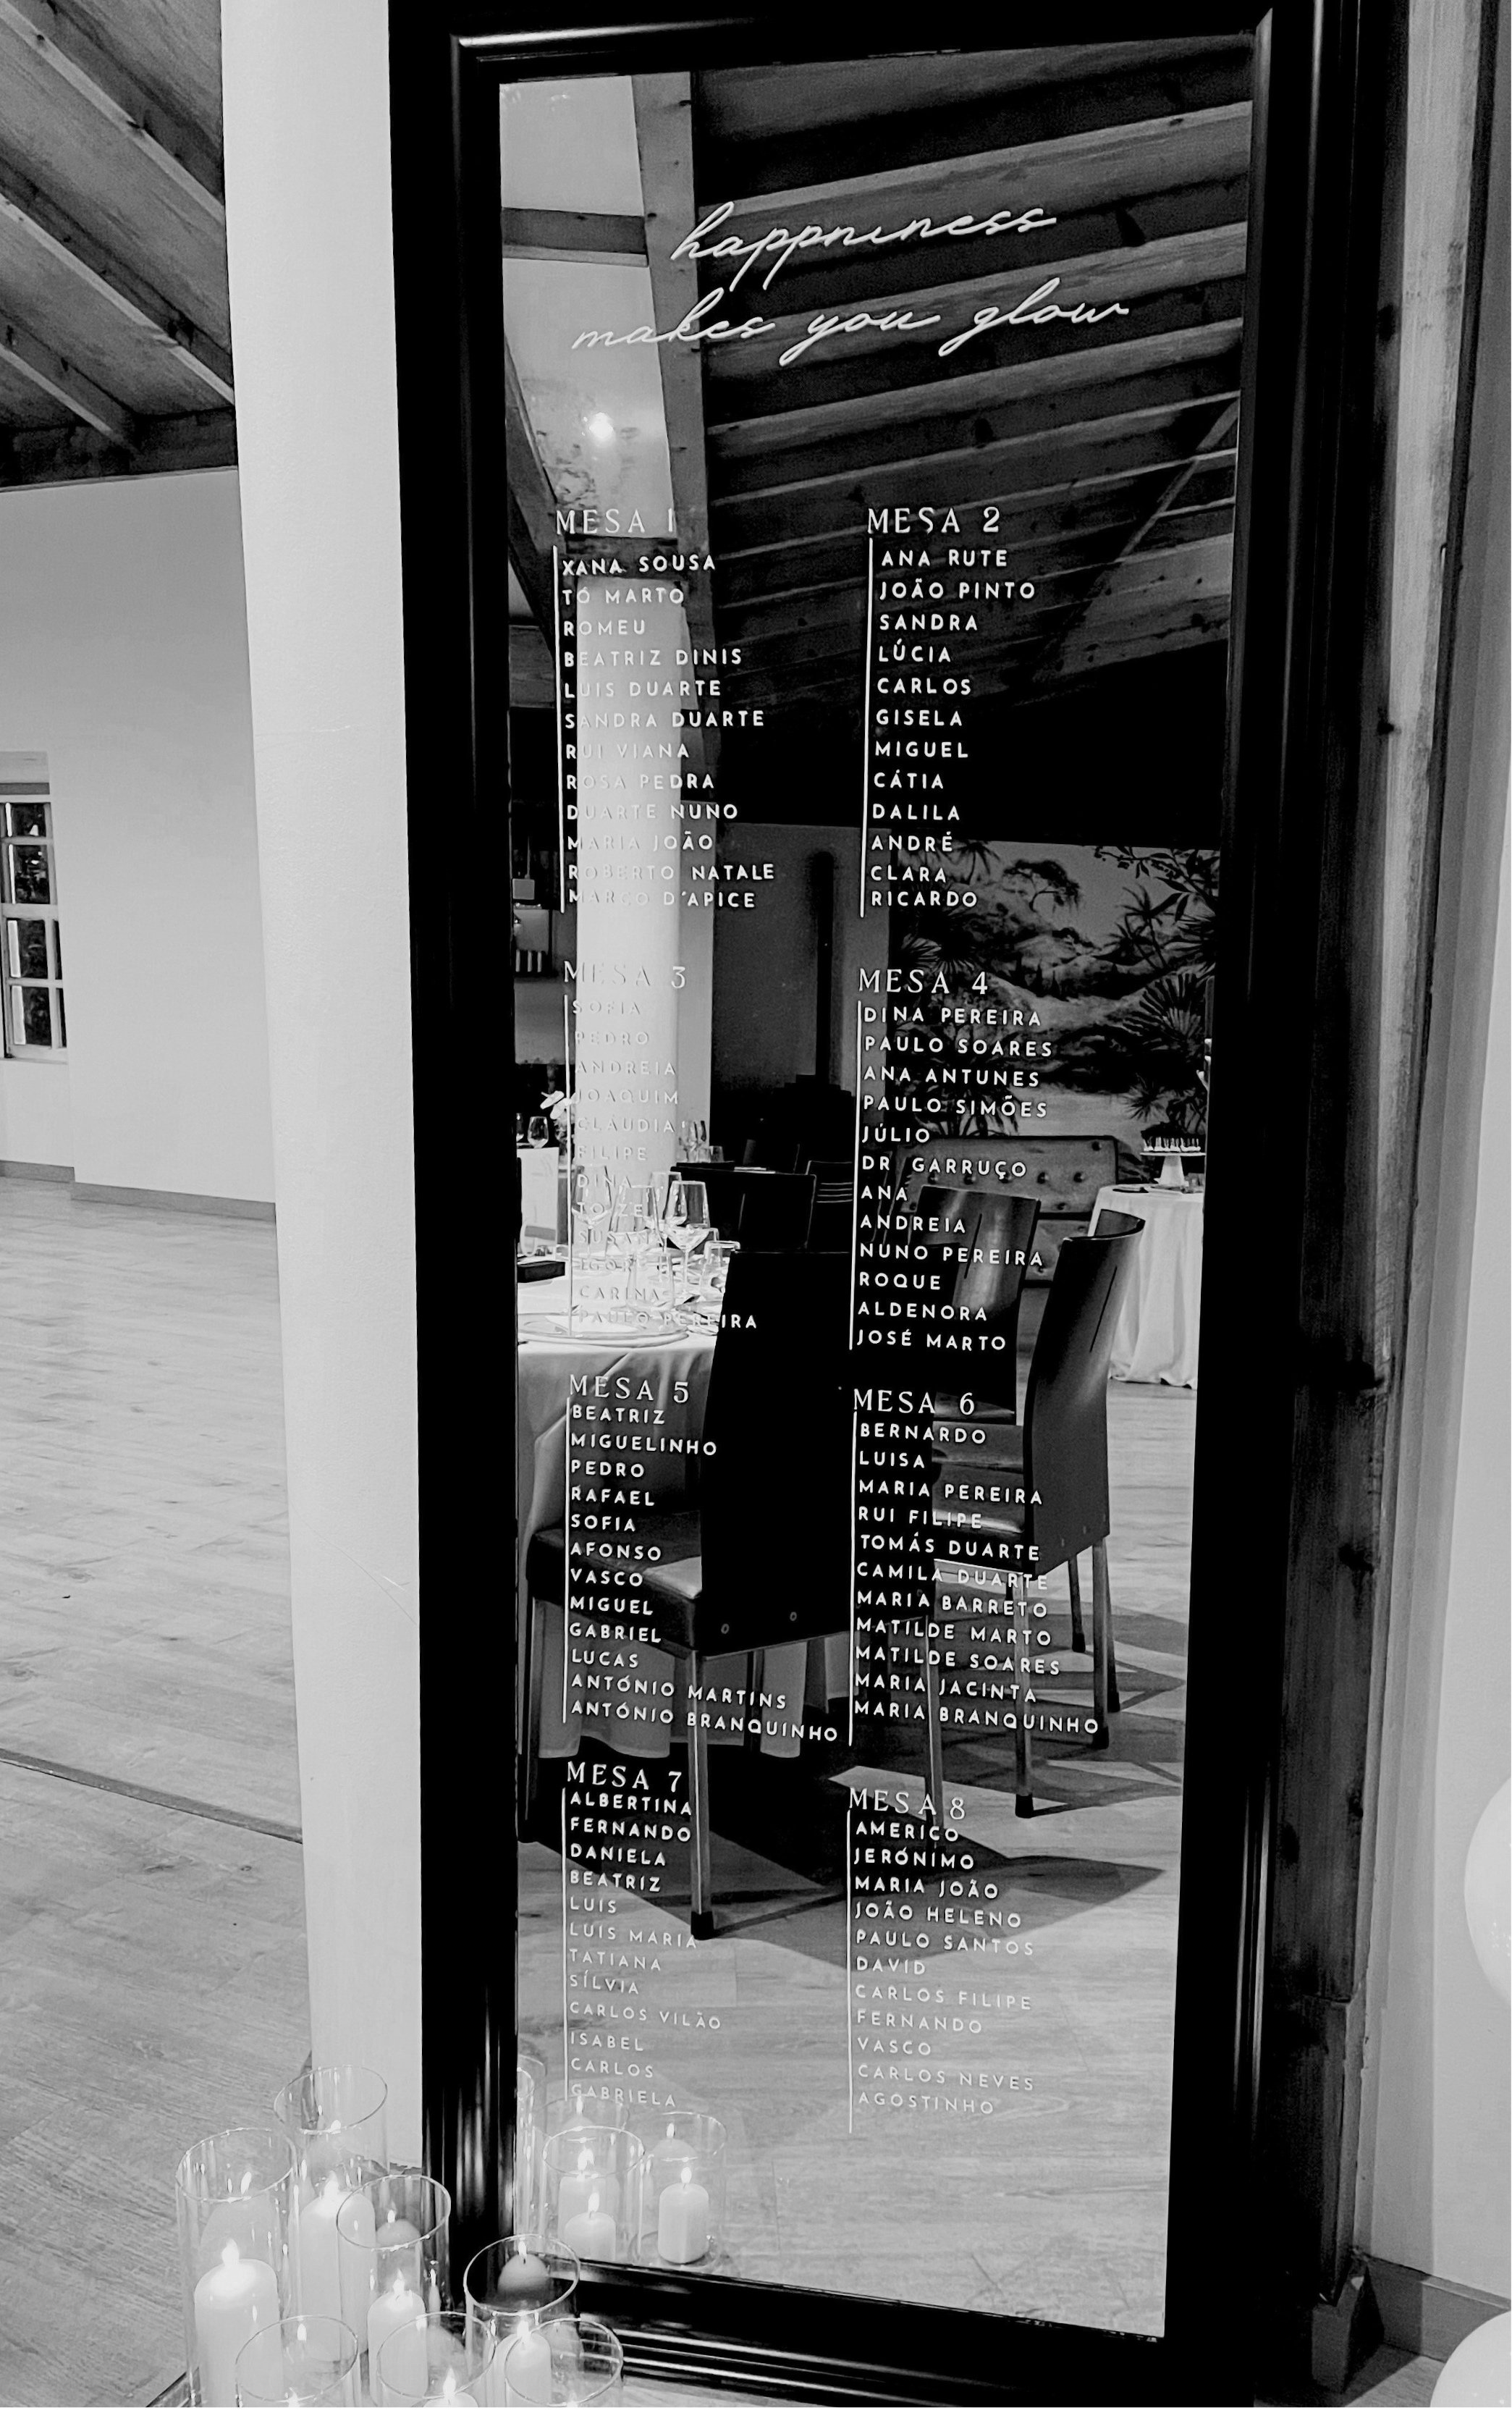 happniness
makes you glow
MESA 1
XANA SOUSA
TÓ MARTO
ROMEU
BEATRIZ DINIS
LUIS DUARTE
SANDRA DUARTE
RUI VIANA
ROSA PEDRA
DUARTE NUNO
MARIA JOÃO
ROBERTO NATALE
MARCO D'APICE
MESA 2
ANA RUTE
JOÃO PINTO
SANDRA
LÚCIA
CARLOS
GISELA
MIGUEL
CÁTIA
DALILA
ANDRÉ
CLARA
RICARDO
MESA 3
SOFIA
PEDRO
ANDREIA
JOAQUIM
CLAUDIA
FILIPE
DINA
TO ZE
SUSANA
IGOR
CARINA
PAULO PEREIRA
MESA 4
DINA PEREIRA
PAULO SOARES
ANA ANTUNES
PAULO SIMÕES
JÚLIO
DR GARRUÇO
ANA
ANDREIA
NUNO PEREIRA
ROQUE
ALDENORA
JOSÉ MARTO
MESA 5
BEATRIZ
MIGUELINHO
PEDRO
RAFAEL
SOFIA
AFONSO
VASCO
MIGUEL
GABRIEL
LUCAS
ANTÓNIO MARTINS
ANTÓNIO BRANQUINHO
MESA 6
BERNARDO
LUISA
MARIA PEREIRA
RUI FILIPE
TOMÁS DUARTE
CAMILA DUARTE
MARIA BARRETO
MATILDE MARTO
MATILDE SOARES
MARIA JACINTA
MARIA BRANQUINHO
MESA 7
ALBERTINA
FERNANDO
DANIELA
BEATRIZ
LUIS
LUIS MARIA
TATIANA
SÍLVIA
CARLOS VILÃO
ISABEL
CARLOS
GABRIELA
MESA 8
AMERICO
JERÓNIMO
MARIA JOÃO
JOÃO HELENO
PAULO SANTOS
DAVID
CARLOS FILIPE
FERNANDO
VASCO
CARLOS NEVES
AGOSTINHO